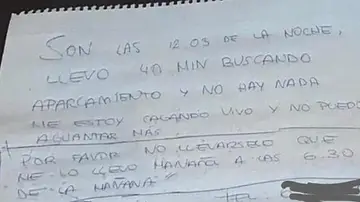 SON LAS 12 03 DE LA NOCHE,
LLEVO 40 MIN BUSCANDO
APARCAMIENTO Y NO HAY NADA
ME ESTOY CAGANDO VIVO Y NO PUEDO
AGUANTAR MAS.
POR FAVOR NO LLEVARSELO QUE
ME LO LLEVO MAÑANA A LAS 6.30
DE LA MAÑANA"
TEL.